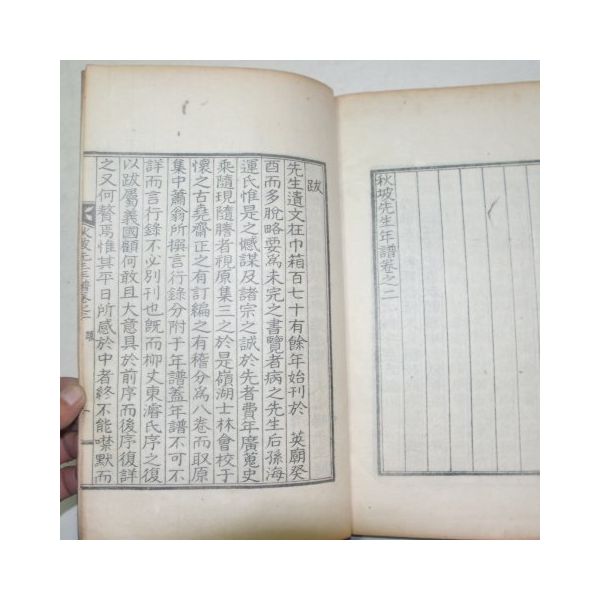 秋坡先生年譜卷之二
跋
先生遺文在巾箱百七十有餘年始刊於 英廟癸
酉而多脫略要爲未完之書覽者病之先生后孫海
運氏惟是之憾謀及諸宗之誠於先者費年廣蒐史
乘隨現隨謄者視原集三之於是嶺湖士林會校于
懷之古堯齋正之有訂編之有稽分爲八卷而取原
集中蕭翁所撰言行錄分附于年譜蓋年譜不可不
詳而言行錄不必別刊也旣而柳丈東濬氏序之復
以跋屬義國顧何敢且大意具於前序而後序復詳
之又何贅焉惟其平日所感於中者終不能噤默而
秋坡先生年譜卷之二